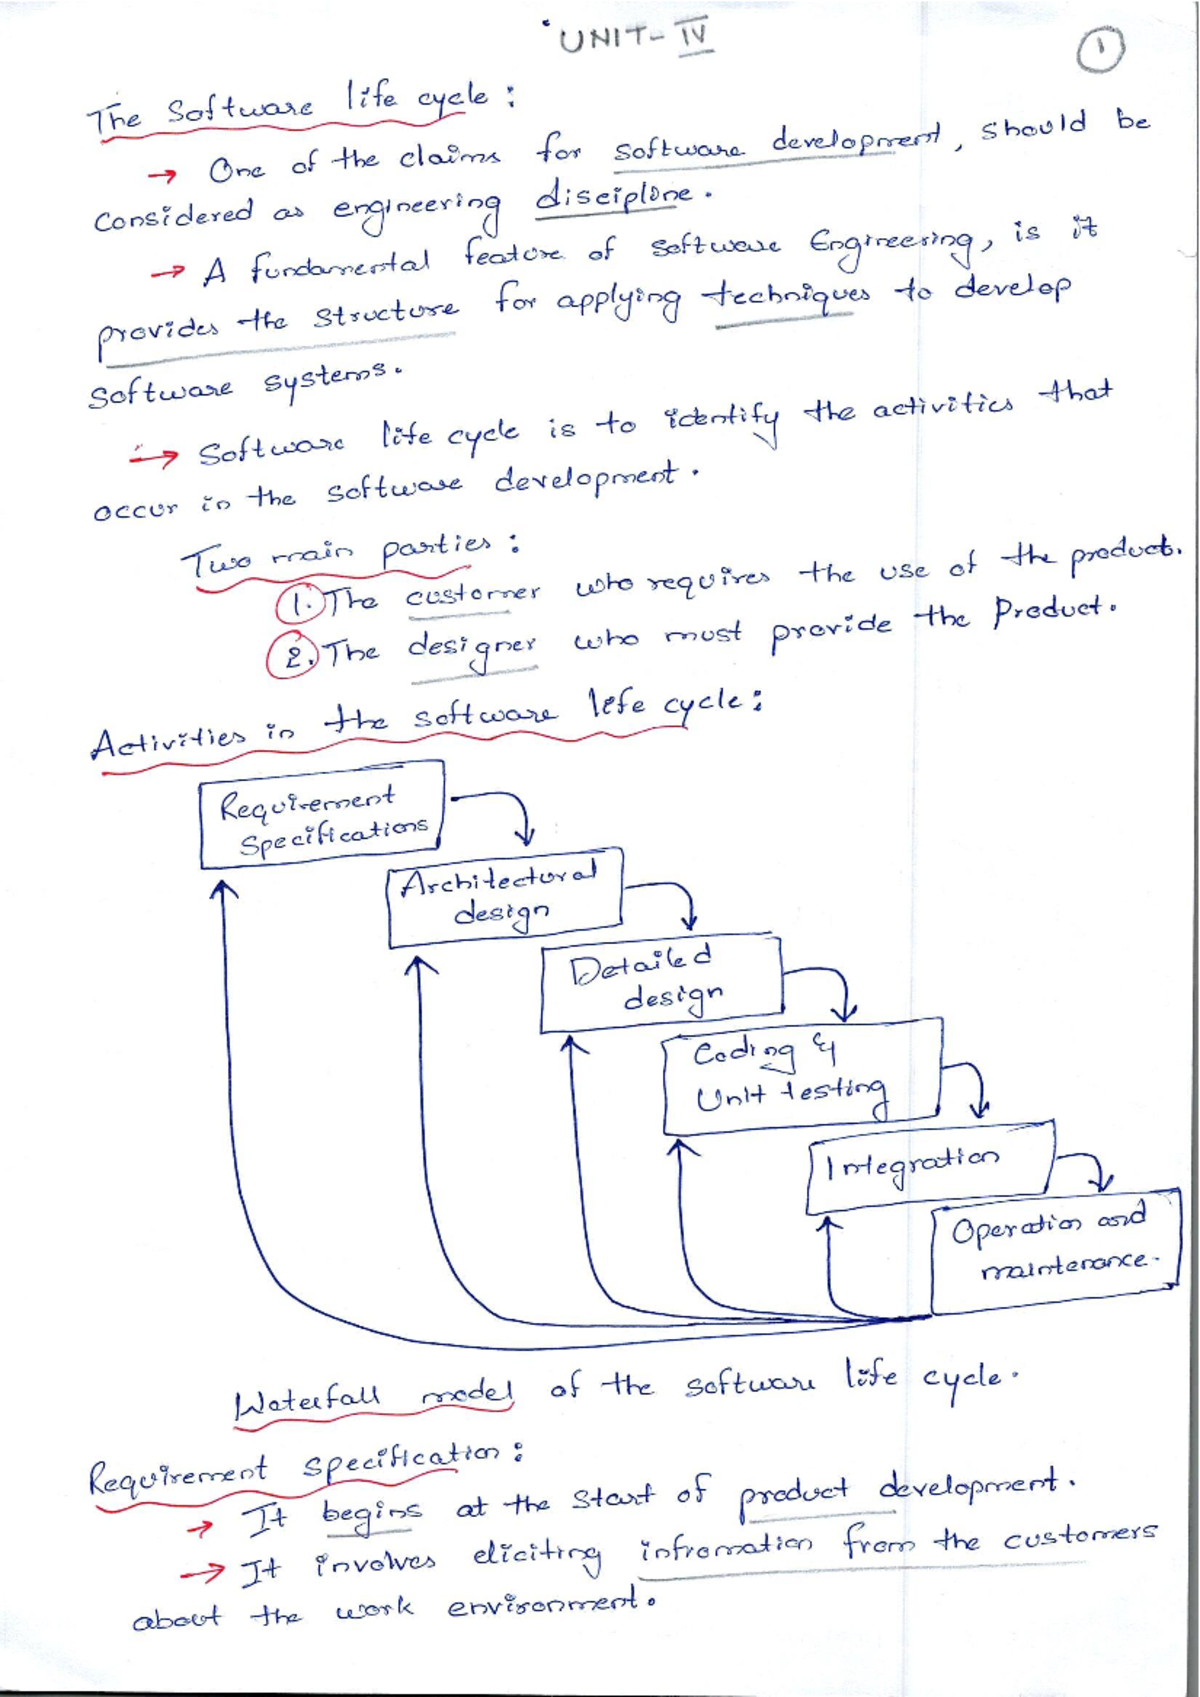 UNIT-IV
1
The Software life cycle:
→ One of the claims for software development, should be
considered as engineering discipline.
→ A fundamental feature of software Engineering, is it
provides the structure for applying techniques to develop
software systems.
→ Software life cycle is to identify the activities that
occur in the software development.
Two main parties:
1. The customer who requires the use of the product.
2. The designer who must provide the Product.
Activities in the software life cycle:
Requirement
Specifications
Architectural
design
Detailed
design
Coding &
Unit testing
Integration
Operation and
maintenance.
Waterfall model of the software life cycle.
Requirement specification:
→ It begins at the start of product development.
→ It involves eliciting infromation from the customers
about the work environment.